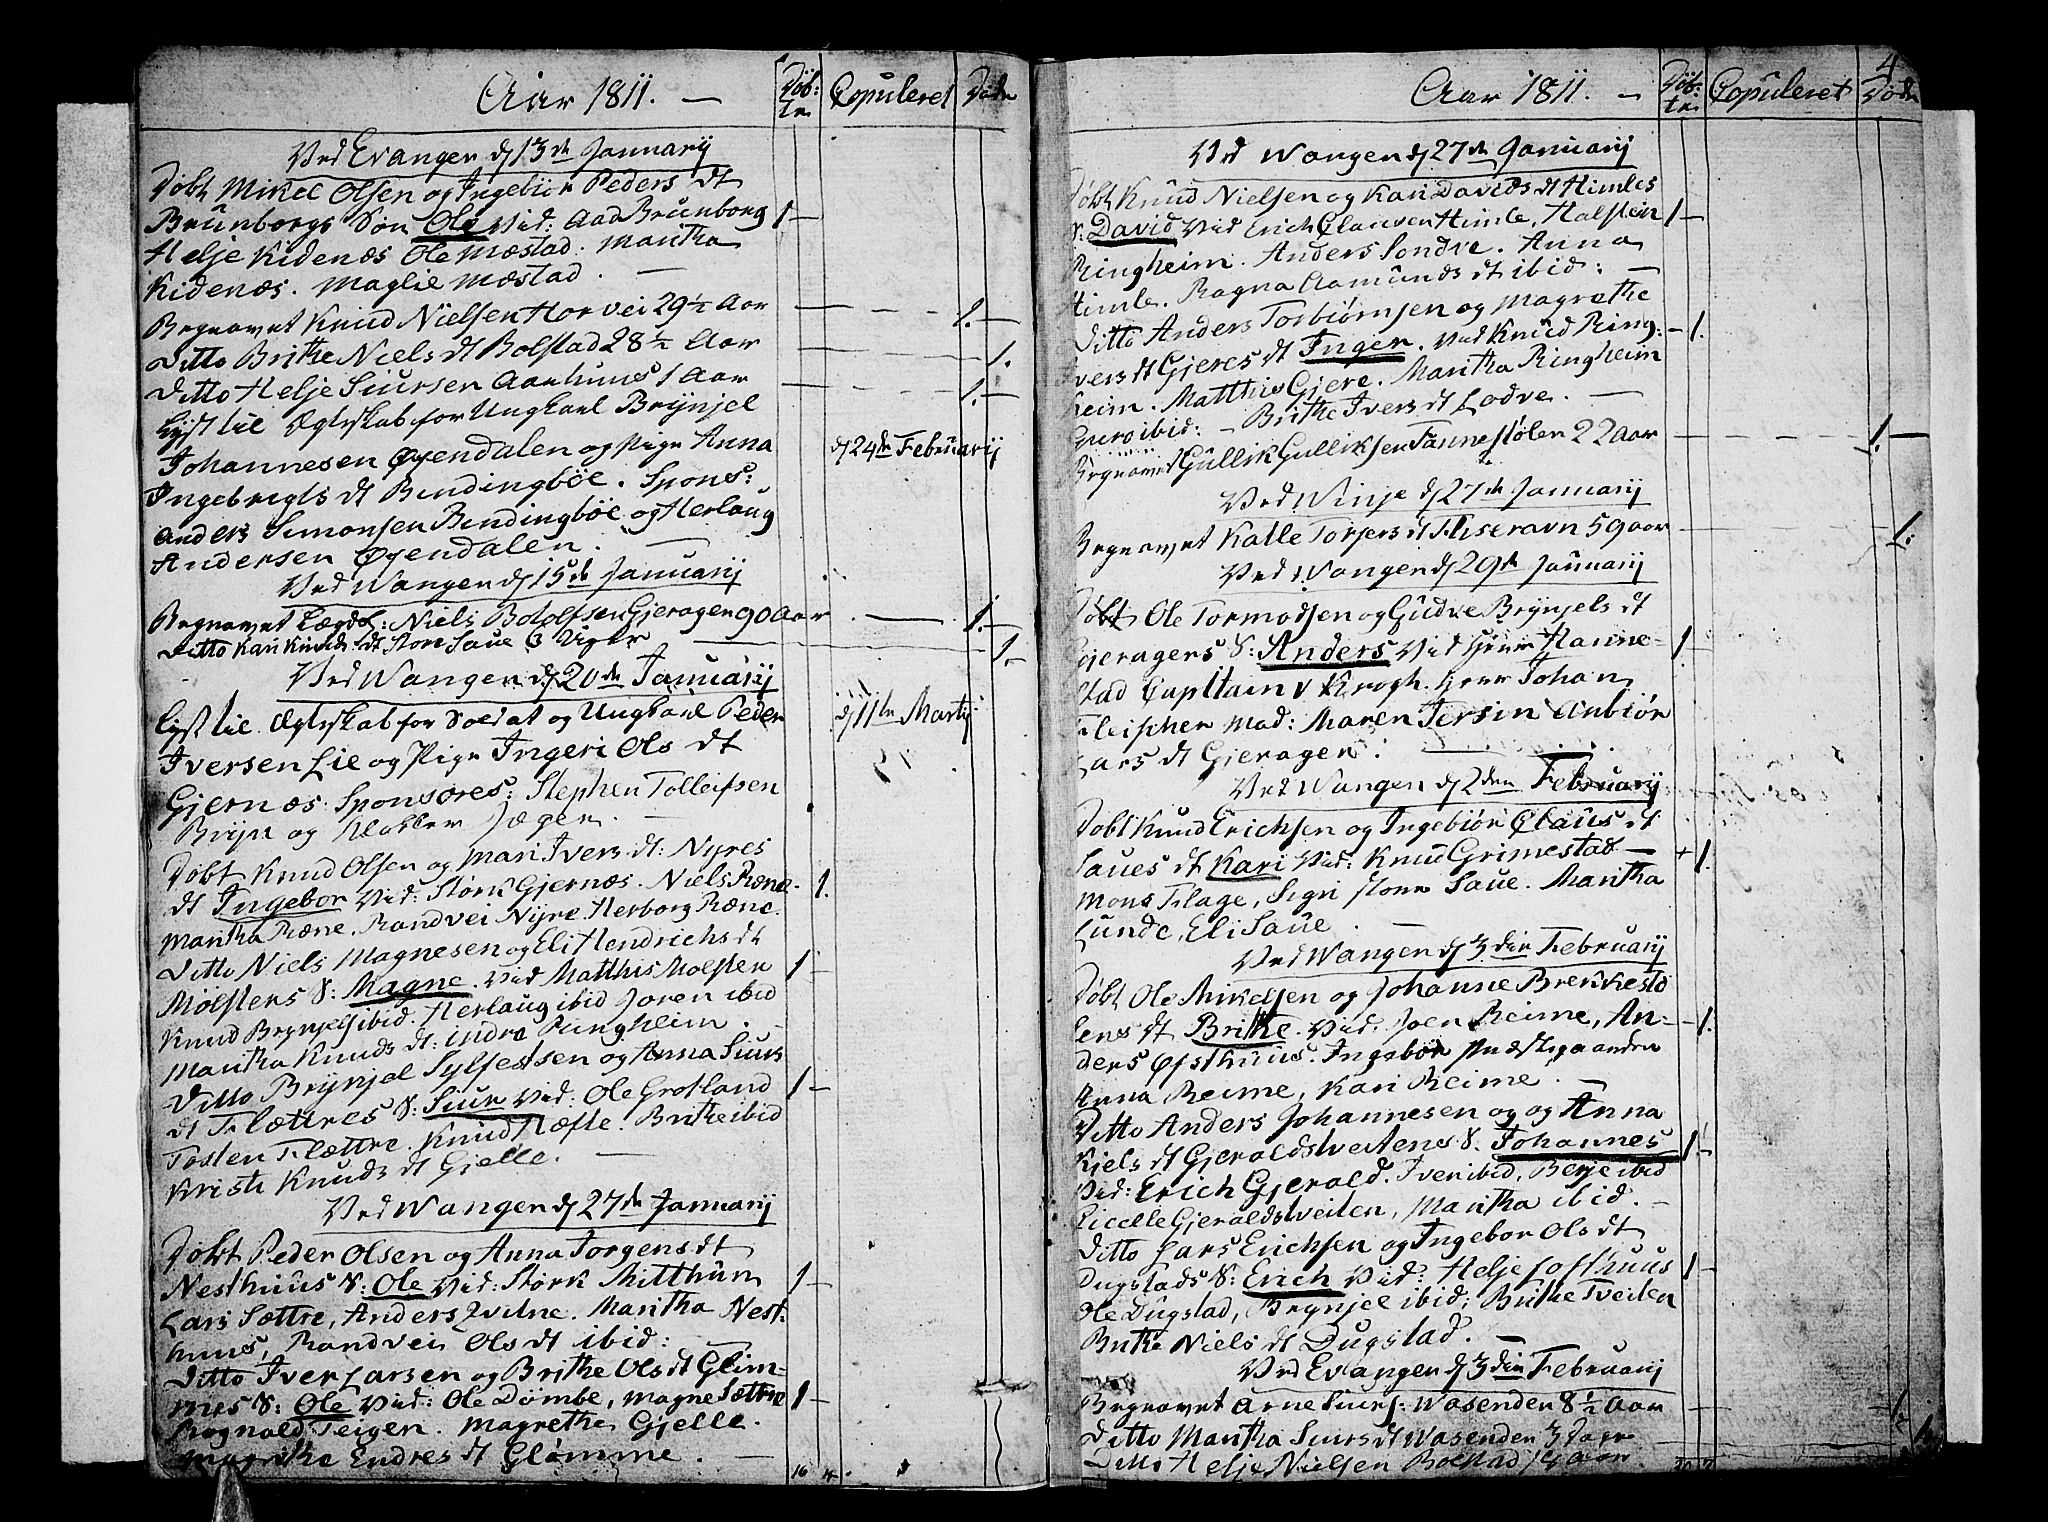 Aar 1811. —
Döb: te
Copuleret
Döde
Ved Evanger d 13de Januarij
Döbt Mikel Olsen og Ingebiör Peders dt
Brunborgs Sön Ole Vid: Aad Brunborg 1 —
Helje Kidenæs Ole Mæstad. Maritha
Kidenæs. Maglie Mæstad. —
Begravet Knud Nielsen Horvei 29 1/2 Aar — 1. —
Ditto Brithe Niels dt Bolstad 28 1/2 Aar — 1.
Ditto Helje Siursen Aarhuus 1 Aar — 1. —
Lyst til Ægteskab for Ungkarl Brÿnjel
Johannesen Øyendalen og Pige Anna d 24de Februarij
Ingebrigts dt Bindingböe. Spons:
Anders Simonsen Bendingböe og Herlaug
Andersen Øyendalen. —
Ved Wangen d 15de Januarij
Begravet Lægdsl: Niels Botolfsen Gjerager 90 Aar — 1. —
Ditto Kari Knuds dt Store Saue 3 Uger — 1. —
Ved Wangen d 20de Januarij
Lyst til Ægteskab for Soldat og Ungkarl Peder d 11te Martij
Iversen Lie og Pige Ingeri Ols dt
Gjernæs. Sponsores: Stephen Tolleifsen
Brÿn og Jæger. —
Döbt Knud Olsen og Mari Ivers dt: Nyres
dt Ingebor Vid: Störk Gjernæs. Niels Ræne. 1.
Maritha Ræne. Randvei Nÿre. Herborg Ræne.
Ditto Niels Magnesen og Eli Hendrichs dt
Mölsters S: Magne. Vid Matthis Molster 1 —
Knud Brynjels ibid. Herlaug ibid Joren ibid
Maritha Knuds dt: indre Ringheim.
Ditto Brÿnjel Sylfestsen og Anna Siurs
dt Flættres S: Siur Vid: Ole Grotland 1 —
Tosten Flættre. Knud Ræfle. Brithe ibid
Kristi Knuds dt Gjelle. —
Ved Wangen d 27de Januarij
Döbt Peder Olsen og Anna Jorgens dt
Nesthuus S: Ole Vid: Störk Mitthun 1 —
Lars Sættre, Anders Zvilne. Maritha Nest-
huus, Randvei Ols dt ibid:
Ditto Iver Larsen og Brithe Ols dt Glim-
mes S: Ole Vid: Ole Dömbe, Magne Sættre 1 —
Rognald Teigen. Magrethe Gjelle.
Magrethe Endres dt Glömme. —
16 4.
4
Aar 1811. —
Döb: te
Copuleret
Döde
Ved Wangen d 27de Januarij
Döbt Knud Nielsen og Kari Davids dt Himles
S: David Vid Erich Clausen Himle, Holstein 1 —
Ringheim. Anders Sondve. Anna
Himle. Ragna Aamunds dt ibid: —
Ditto Anders Torbiörnsen og Magrethe
Ivers dt Gjeres dt Inger. Vid Knud Ring: — 1.
heim. Matthis Gjere. Maritha Ringheim
Guro ibid: — Brithe Ivers dt Lodve. —
Begravet Gullik Gulliksen Tannestölen 22 Aar — 1. —
Ved Winje d 27de Januarij
Begravet Kalle Torjers dt Fliseravn 59 aar — 1.
Ved Wangen d 29de Januarij
Döbt Ole Tormodsen og Gudve Brynjels dt
Gjeragers S: Anders Vid Herr Hanne- 1
stad Capitain v Krogh. Herr Johan
Fleischer Mad: Maren Jersin Anbiör
Lars dt Gjerager. —
Ved Wangen d 2den Februarij
Döbt Knud Erichsen og Ingebiör Claus dt
Saues dt Kari Vid: Knud Grimestad — + 1.
Mons Flage, Sigri Store Saue. Maritha
Lunde, Eli Saue. —
Ved Wangen d 3die Februarij
Döbt Ole Mikelsen og Johanne Brekkestö
lens dt Brithe. Vid: Joen Reime, An- — 1.
ders Øfsthuus. Ingebör Præstegaarden
Anna Reime, Kari Reime. —
Ditto Anders Johannesen og og Anna
Kjels dt Gjeraldstveitenes S: Johannes 1 —
Vid: Erich Gjerald. Iver ibid, Berje ibid
Gjeraldstveiten, Maritha ibid. —
Ditto Lars Erichsen og Ingebor Ols dt
Dugstads S: Erich Vid: Helje Lofthuus 1 —
Ole Dugstad, Brynjel ibid; Brithe Tveiten
Brithe Niels dt Dugstad. —
Ved Evanger d 3die Februarij
Begravet Arne Siurs: Wasenden 8 1/2 Aar — 1.
Ditto Maritha Siurs dt Wasenden 3 Dage — 1.
Ditto Helje Nielsen Bolstad Aar.